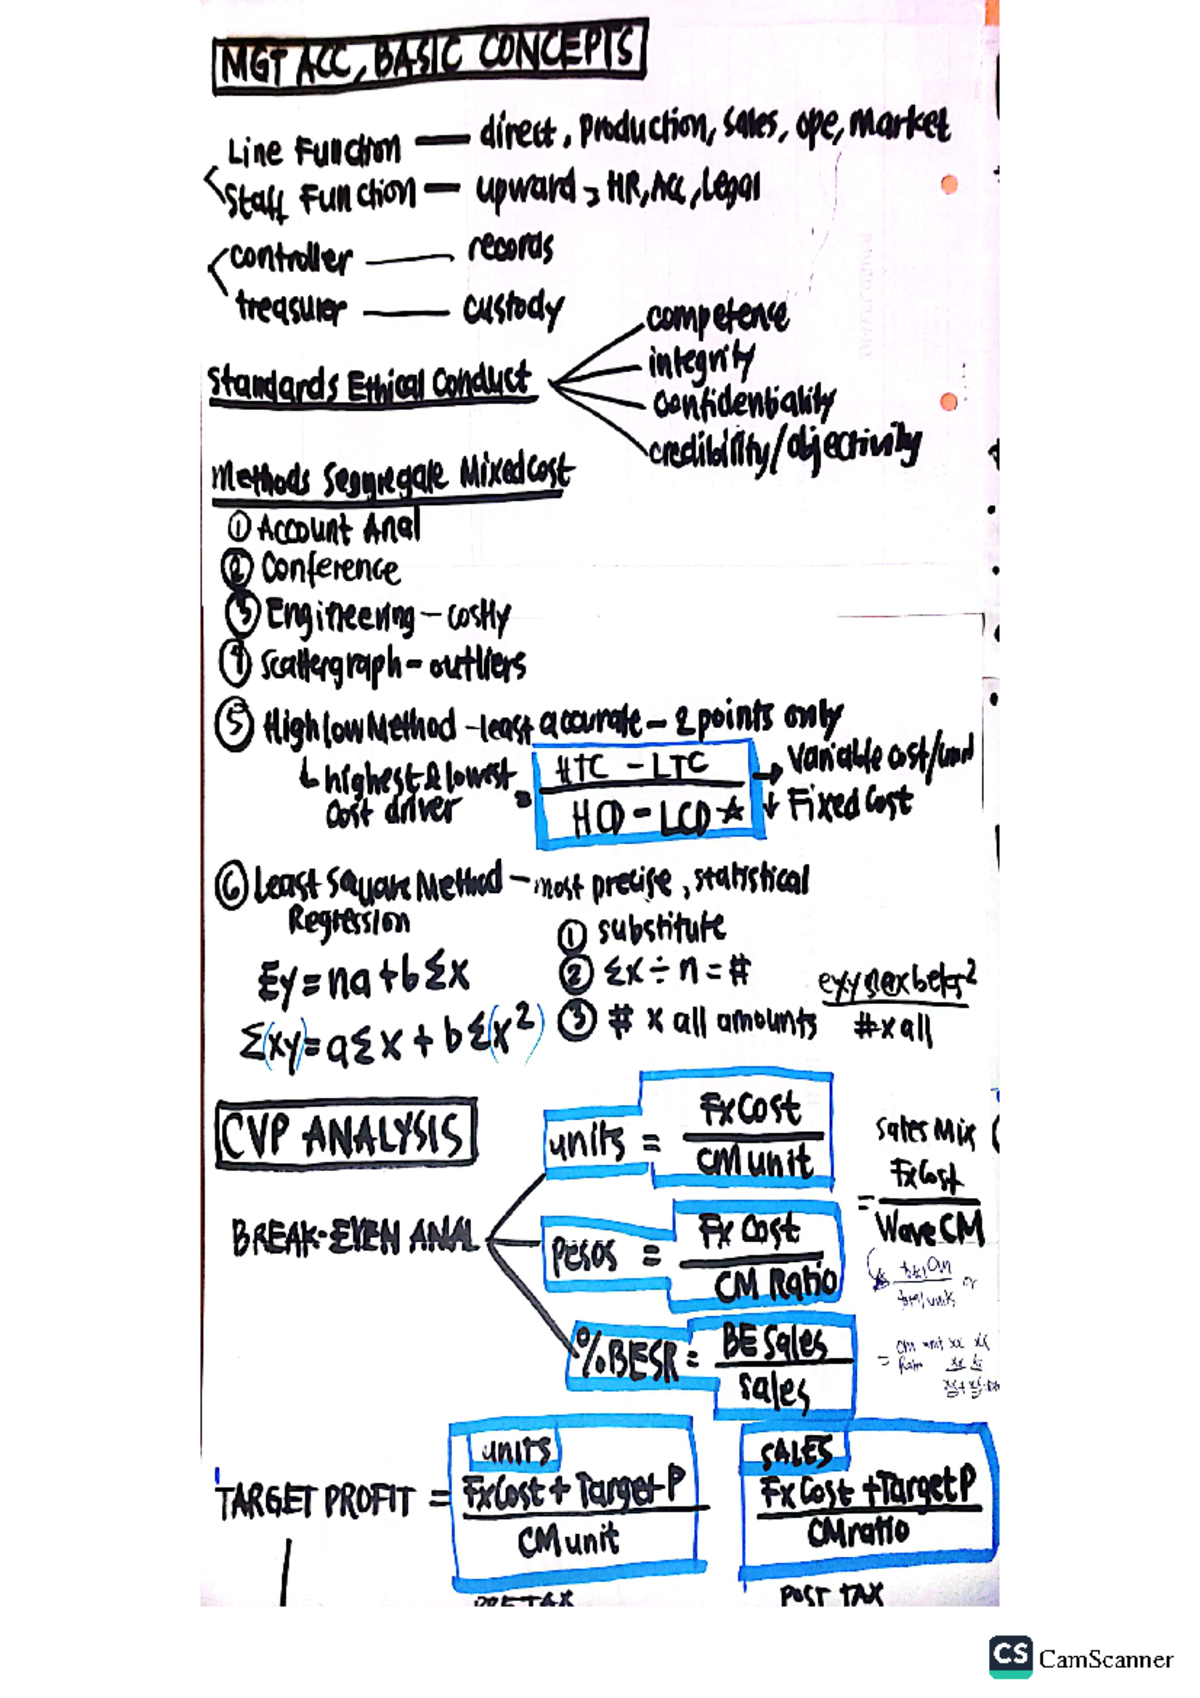 MGT ACC, BASIC CONCEPTS
Line Function — direct, Production, Sales, ope, market
Staff Function — upward, HR, Acc, Legal
controller — records
treasurer — custody
Standards Ethical Conduct
competence
integrity
confidentiality
credibility/objectivity
Methods Seggregate Mixed Cost
① Account Anal
② Conference
③ Engineering - costly
④ Scattergraph - outliers
⑤ High low Method - least accurate - 2 points only
↳ highest & lowest cost driver
= HTC - LTC / HCD - LCD ☆
→ Variable cost/unit
↓ Fixed Cost
⑥ Least Square Method - most precise, statistical
Regression
① substitute
② Σx ÷ n = #
③ # x all amounts
Σy = na + b Σx
Σ(xy) = aΣx + bΣ(x²)
#x all
CVP ANALYSIS
BREAK-EVEN ANAL
units = Fx Cost / CM unit
Pesos = Fx Cost / CM Ratio
% BESR = BE Sales / Sales
Sales Mix
= Fx Cost / Wave CM
total units
or
TARGET PROFIT =
units
Fx Cost + Target P / CM unit
SALES
Fx Cost + Target P / CM ratio
PRE TAX
POST TAX
CS CamScanner